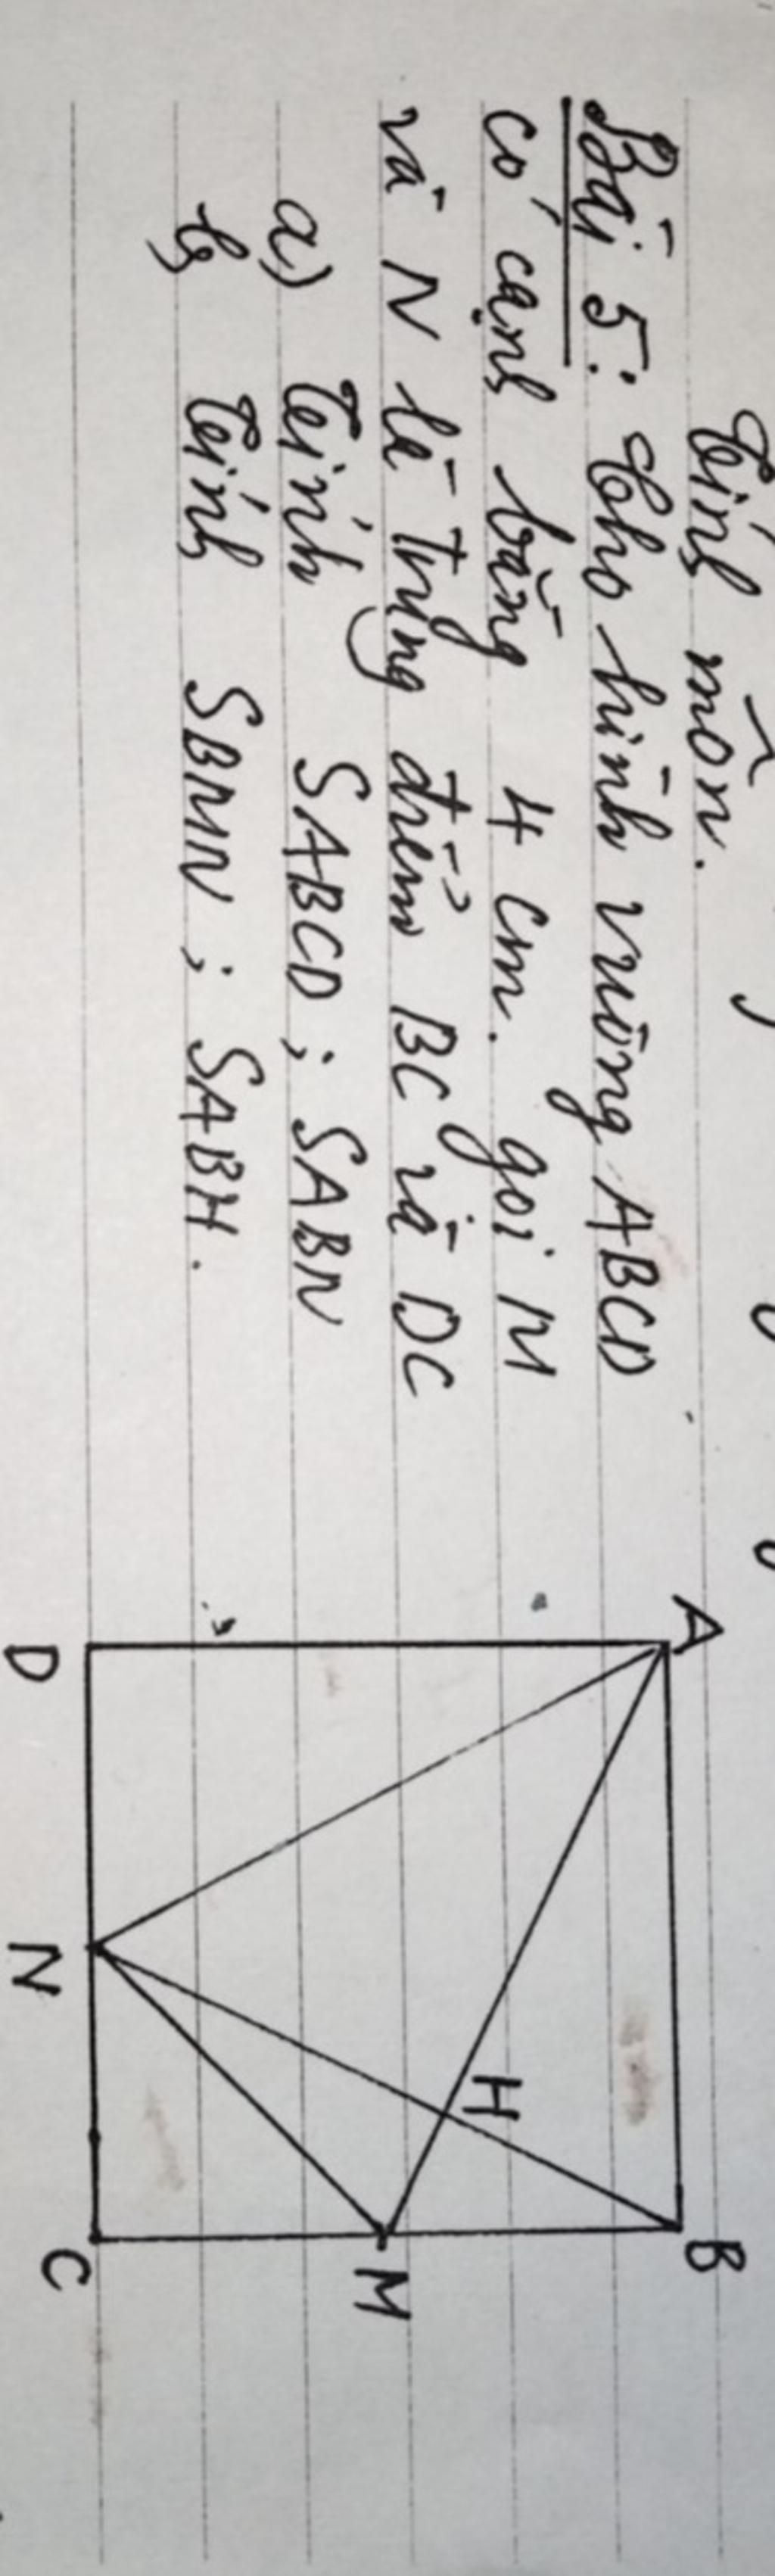 Tính môn.
Bài 5: Cho hình vuông ABCD
có cạnh bằng 4 cm. gọi M
và N là Trung điểm BC và DC
a) Tính SABCD ; SABN
b, Tính SBMN ; SABH.
A
B
H
M
D
N
C